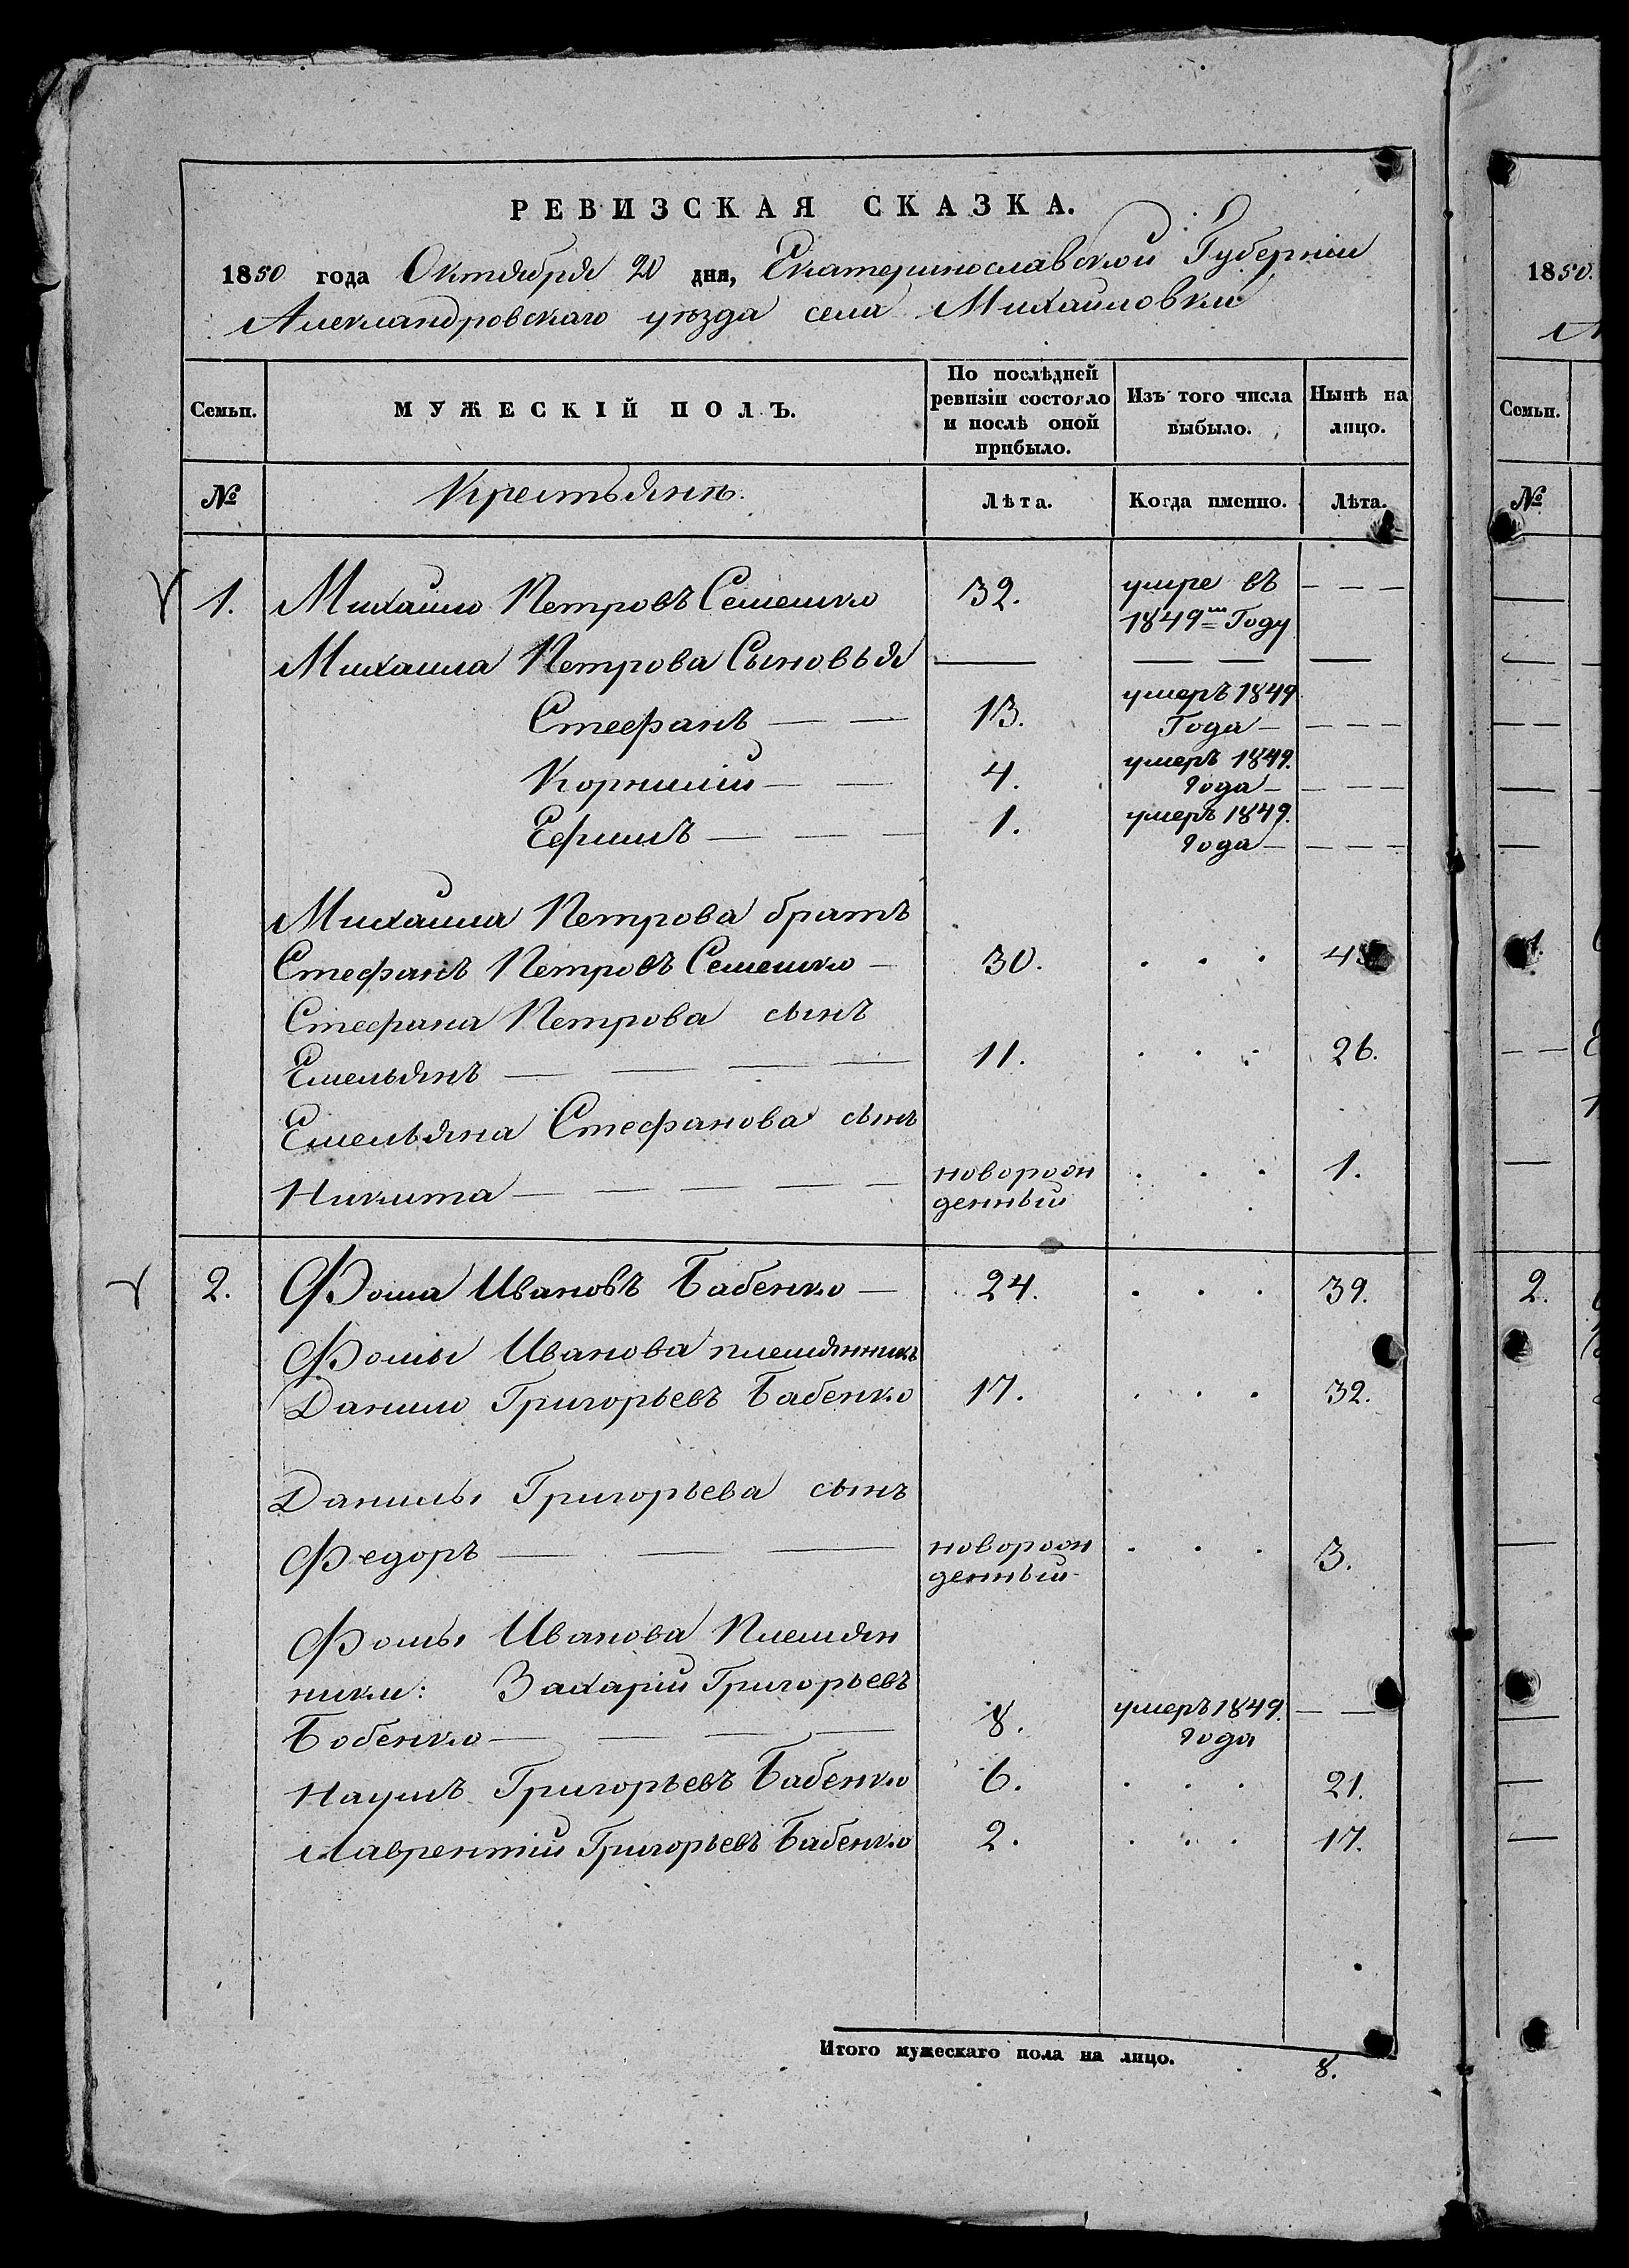 РЕВИЗСКАЯ СКАЗКА.
1850 года Октября 20 дня, Екатеринославской Губерніи
Александровскаго уѣзда села Михайловки
Семьи. МУЖЕСКІЙ ПОЛЪ. По послѣдней ревизіи состояло и послѣ оной прибыло. Изъ того числа выбыло. Нынѣ на лицо.
№ Крестьяне. Лѣта. Когда именно. Лѣта.
1. Михайло Петровъ Семешко 32. умре въ 1849м Году
Михаила Петрова Сыновья
Стефанъ 13. умеръ 1849. Года
Корнилій 4. умеръ 1849. года
Ефимъ 1. умеръ 1849. года
Михаила Петрова братъ
Стефанъ Петровъ Семешко 30.
Стефана Петрова сынъ
Емельянъ 11. 26.
Емельяна Стефанова сынъ
Никита новорож денный 1.
2. Фома Ивановъ Бабенко 24. 39.
Фомы Иванова племянникъ
Данило Григорьевъ Бабенко 17. 32.
Данилы Григорьева сынъ
Федоръ новорож денный 3.
Фомы Иванова Племян
ники: Захарій Григорьевъ
Бобенко 8. умеръ 1849. года
Наумъ Григорьевъ Бабенко 6. 21.
Лаврентій Григорьевъ Бабенко 2. 17.
Итого мужескаго пола на лицо. 8.
1850.
Семьи.
№
2.